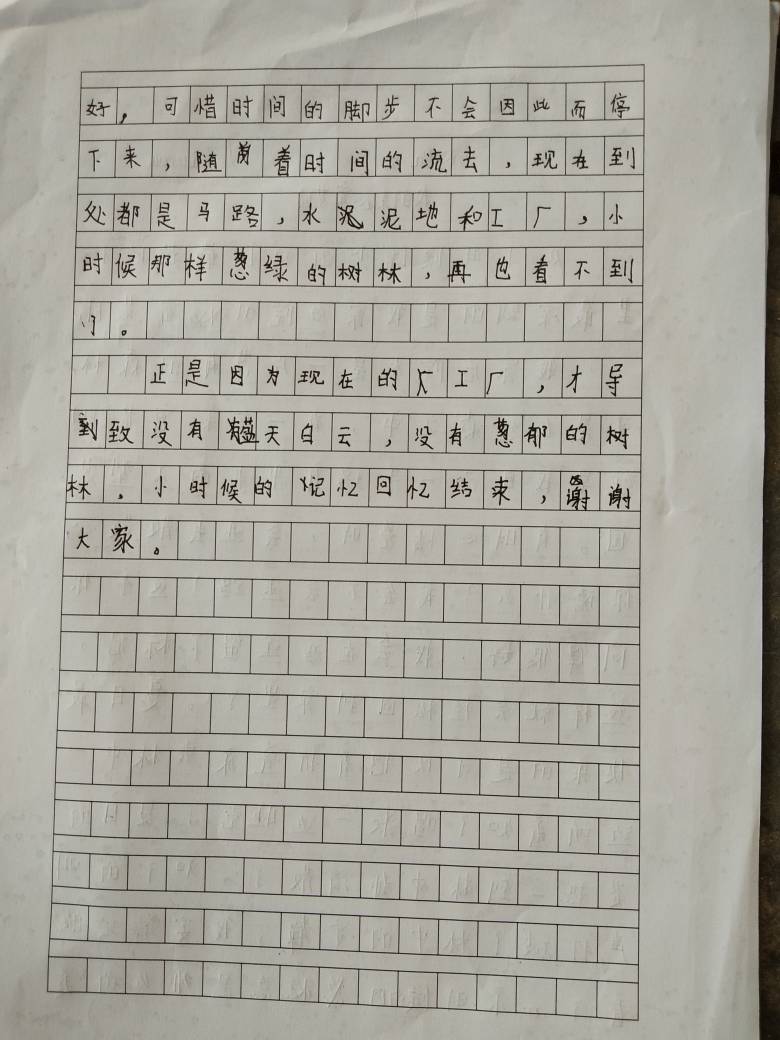 好，可惜时间的脚步不会因此而停
下来，随着时间的流去，现在到
处都是马路，水泥泥地和工厂，小
时候那样葱绿的树林，再也看不到
了。
正是因为现在的工厂，才导
致没有蓝天白云，没有葱郁的树
林。小时候的记忆回忆结束，谢谢
大家。